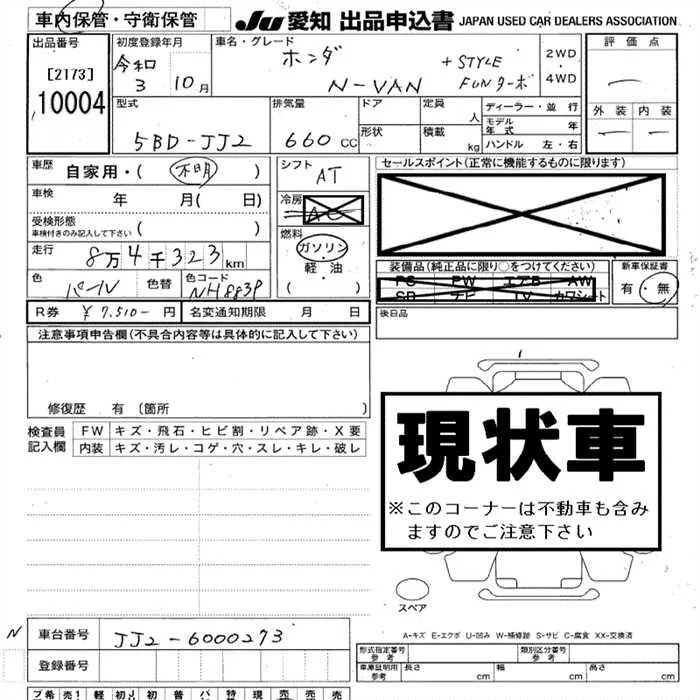 車内保管・守衛保管 JU 愛知 出品申込書 JAPAN USED CAR DEALERS ASSOCIATION
出品番号 初度登録年月 車名・グレード 2WD・4WD 評価点
[2173] 令和 3 10月 ホンダ N-VAN +STYLE FUNターボ
10004 外装 内装
型式 排気量 ドア 定員 人 ディーラー・並行
モデル年式 年
5BD-JJ2 660cc 形状 積載 kg ハンドル 左・右
車歴 自家用・( 不明 ) シフト AT セールスポイント(正常に機能するものに限ります)
車検 年 月( 日) 冷房 AC
受検形態 車検付きのみ記入して下さい ( ) 燃料 ガソリン・軽油 ( )
走行 8万4千323km
装備品(純正品に限り○をつけてください) 新車保証書
PS PW エアB AW 有・無
SR ナビ TV カワシート
色 パール 色替 色コード NH883P
R券 ¥7,510- 円 名変通知期限 月 日 後日品
注意事項申告欄(不具合内容等は具体的に記入して下さい)
修復歴 有 〔箇所 〕
現状車
※このコーナーは不動車も含みますのでご注意下さい
検査員記入欄 FW キズ・飛石・ヒビ割・リペア跡・X要
内装 キズ・汚レ・コゲ・穴・スレ・キレ・破レ
スペア
A-キズ E-エクボ U-凹み W-補修跡 S-サビ C-腐食 XX-交換済
N 車台番号 JJ2-6000273
登録番号
形式指定番号 参考 類別区分番号 参考
車庫証明用 参考 長さ cm 幅 cm 高さ cm